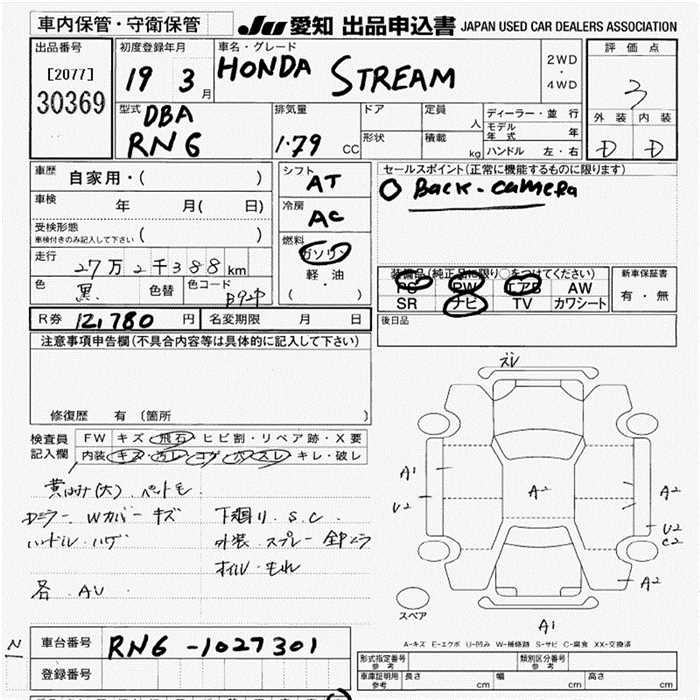 車内保管・守衛保管
JU 愛知 出品申込書 JAPAN USED CAR DEALERS ASSOCIATION
出品番号
[2077]
30369
初度登録年月
19 3月
車名・グレード
HONDA STREAM
2WD
・
4WD
評価点
3
外装 内装
D D
型式
DBA
RN6
排気量
1.79 CC
ドア
形状
定員
人
積載
kg
ディーラー・並行
モデル年式 年
ハンドル 左・右
車歴
自家用・( )
車検 年 月( 日)
受検形態
車検付きのみ記入して下さい ( )
走行
27万2千388km
色
黒
色替
色コード
B92P
シフト
AT
冷房
AC
燃料
ガソリン
軽・油
( ・ )
セールスポイント(正常に機能するものに限ります)
○ Back-camera
装備品(純正品に限り○をつけてください)
PS PW エアB AW
SR ナビ TV カワシート
新車保証書
有・無
後日品
R券 12,780 円 名変期限 月 日
注意事項申告欄(不具合内容等は具体的に記入して下さい)
修復歴 有(箇所 )
検査員
記入欄
FW キズ・飛石・ヒビ割・リペア跡・X要
内装 キズ・汚レ・コゲ・穴・スレ・キレ・破レ
ペット毛
Wカバーキズ
下廻り S.C.
ハンドル ハゲ
外装 スプレー
オイルもれ
各 AU
ズレ
A1
U2
A2
A2
U2
C2
A2
A1
スペア
A-キズ E-エクボ U-凹み W-補修跡 S-サビ C-腐食 XX-交換済
車台番号 RN6-1027301
登録番号
型式指定番号
参考
類別区分番号
参考
車庫証明用
参考
長さ cm 幅 cm 高さ cm